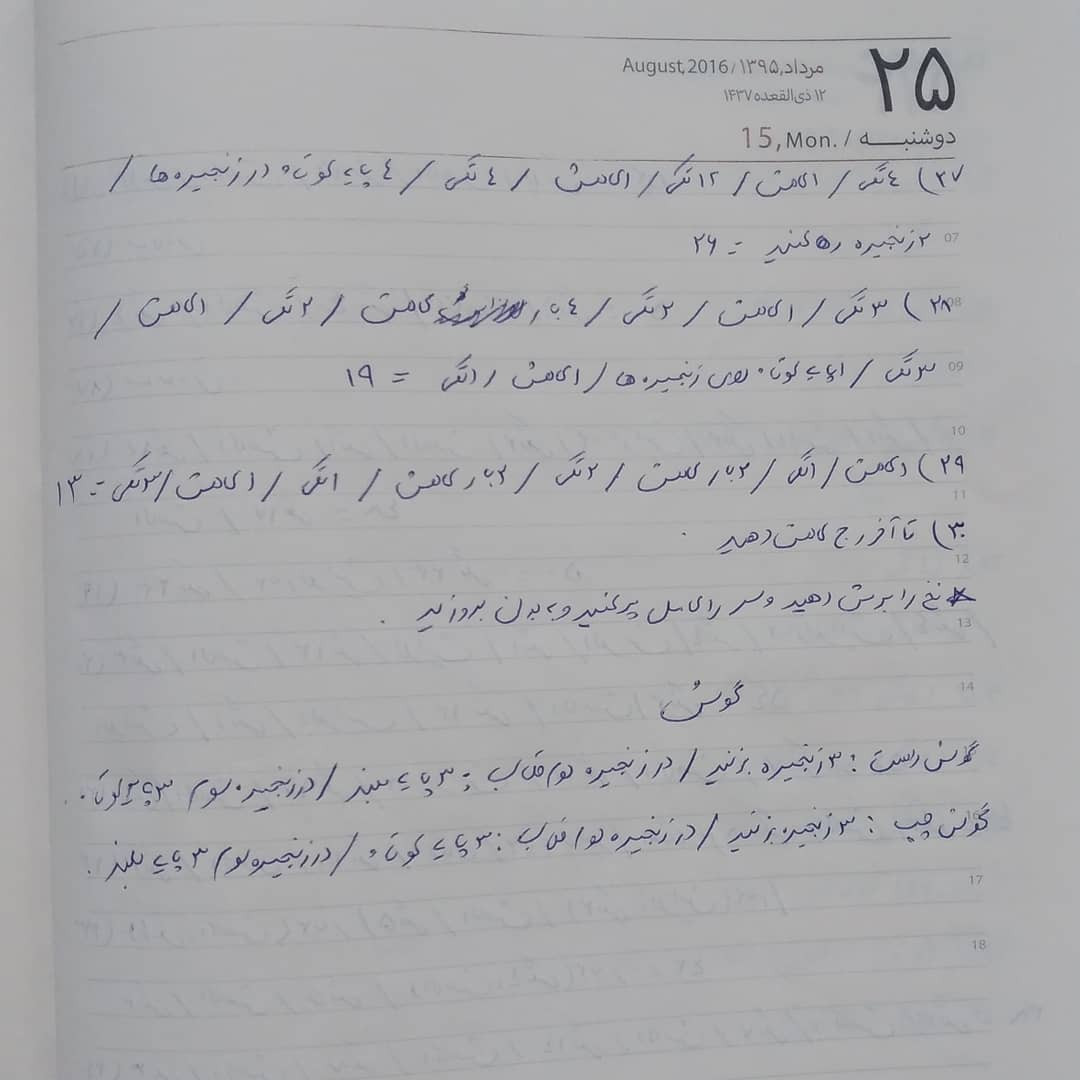 ۲۵
مرداد,۱۳۹۵/August,2016
۱۲ ذی‌القعده ۱۴۳۷
دوشنبه / .15, Mon
۲۷) ٤ تکی / ۱ کاهش / ۱۲ تکی / ۱ کاهش / ٤ تکی / ٤ پایه کوتاه در زنجیره ها /
07 ۲ زنجیره رها کنید = ۲۶
08 ۲۸) ۳ تکی / ۱ کاهش / ۲ تکی / ٤ بار کاهش / ۲ تکی / ۱ کاهش /
09 ۳ تکی / ۱ پایه کوتاه روی زنجیره ها / ۱ کاهش / ۱ تکی = ۱۹
10
۲۹) ۱ کاهش / ۱ تکی / ۲ بار کاهش / ۲ تکی / ۲ بار کاهش / ۱ تکی / ۱ کاهش / ۲ تکی = ۱۳
11
۳۰) تا آخر رج کاهش دهید .
12
* نخ را برش دهید و سر را کامل پر کنید و به بدن بدوزید .
13
14
گوش
گوش راست : ۳ زنجیره بزنید / در زنجیره دوم قلاب : ۳ پایه بلند / در زنجیره سوم ۳ پایه کوتاه .
گوش چپ : ۳ زنجیره بزنید / در زنجیره دوم قلاب : ۳ پایه کوتاه / در زنجیره سوم ۳ پایه بلند .
17
18